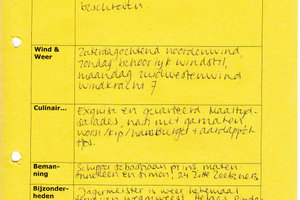 beschreven
Wind &
Weer
Zaterdagochtend noordenwind,
zondag behoorlijk windstil,
maandag zuidwestenwind
windkracht 7
Culinair...
Exquise en gevarieerd. Maaltijd-
salades, nasi met garnalen
worst/kip/hamburger + aardappel
Beman-
ning
Schipper prins, maten
en Simon, 24 Zeekeners
Bijzonder-
heden
Jagermeister is weer helemaal